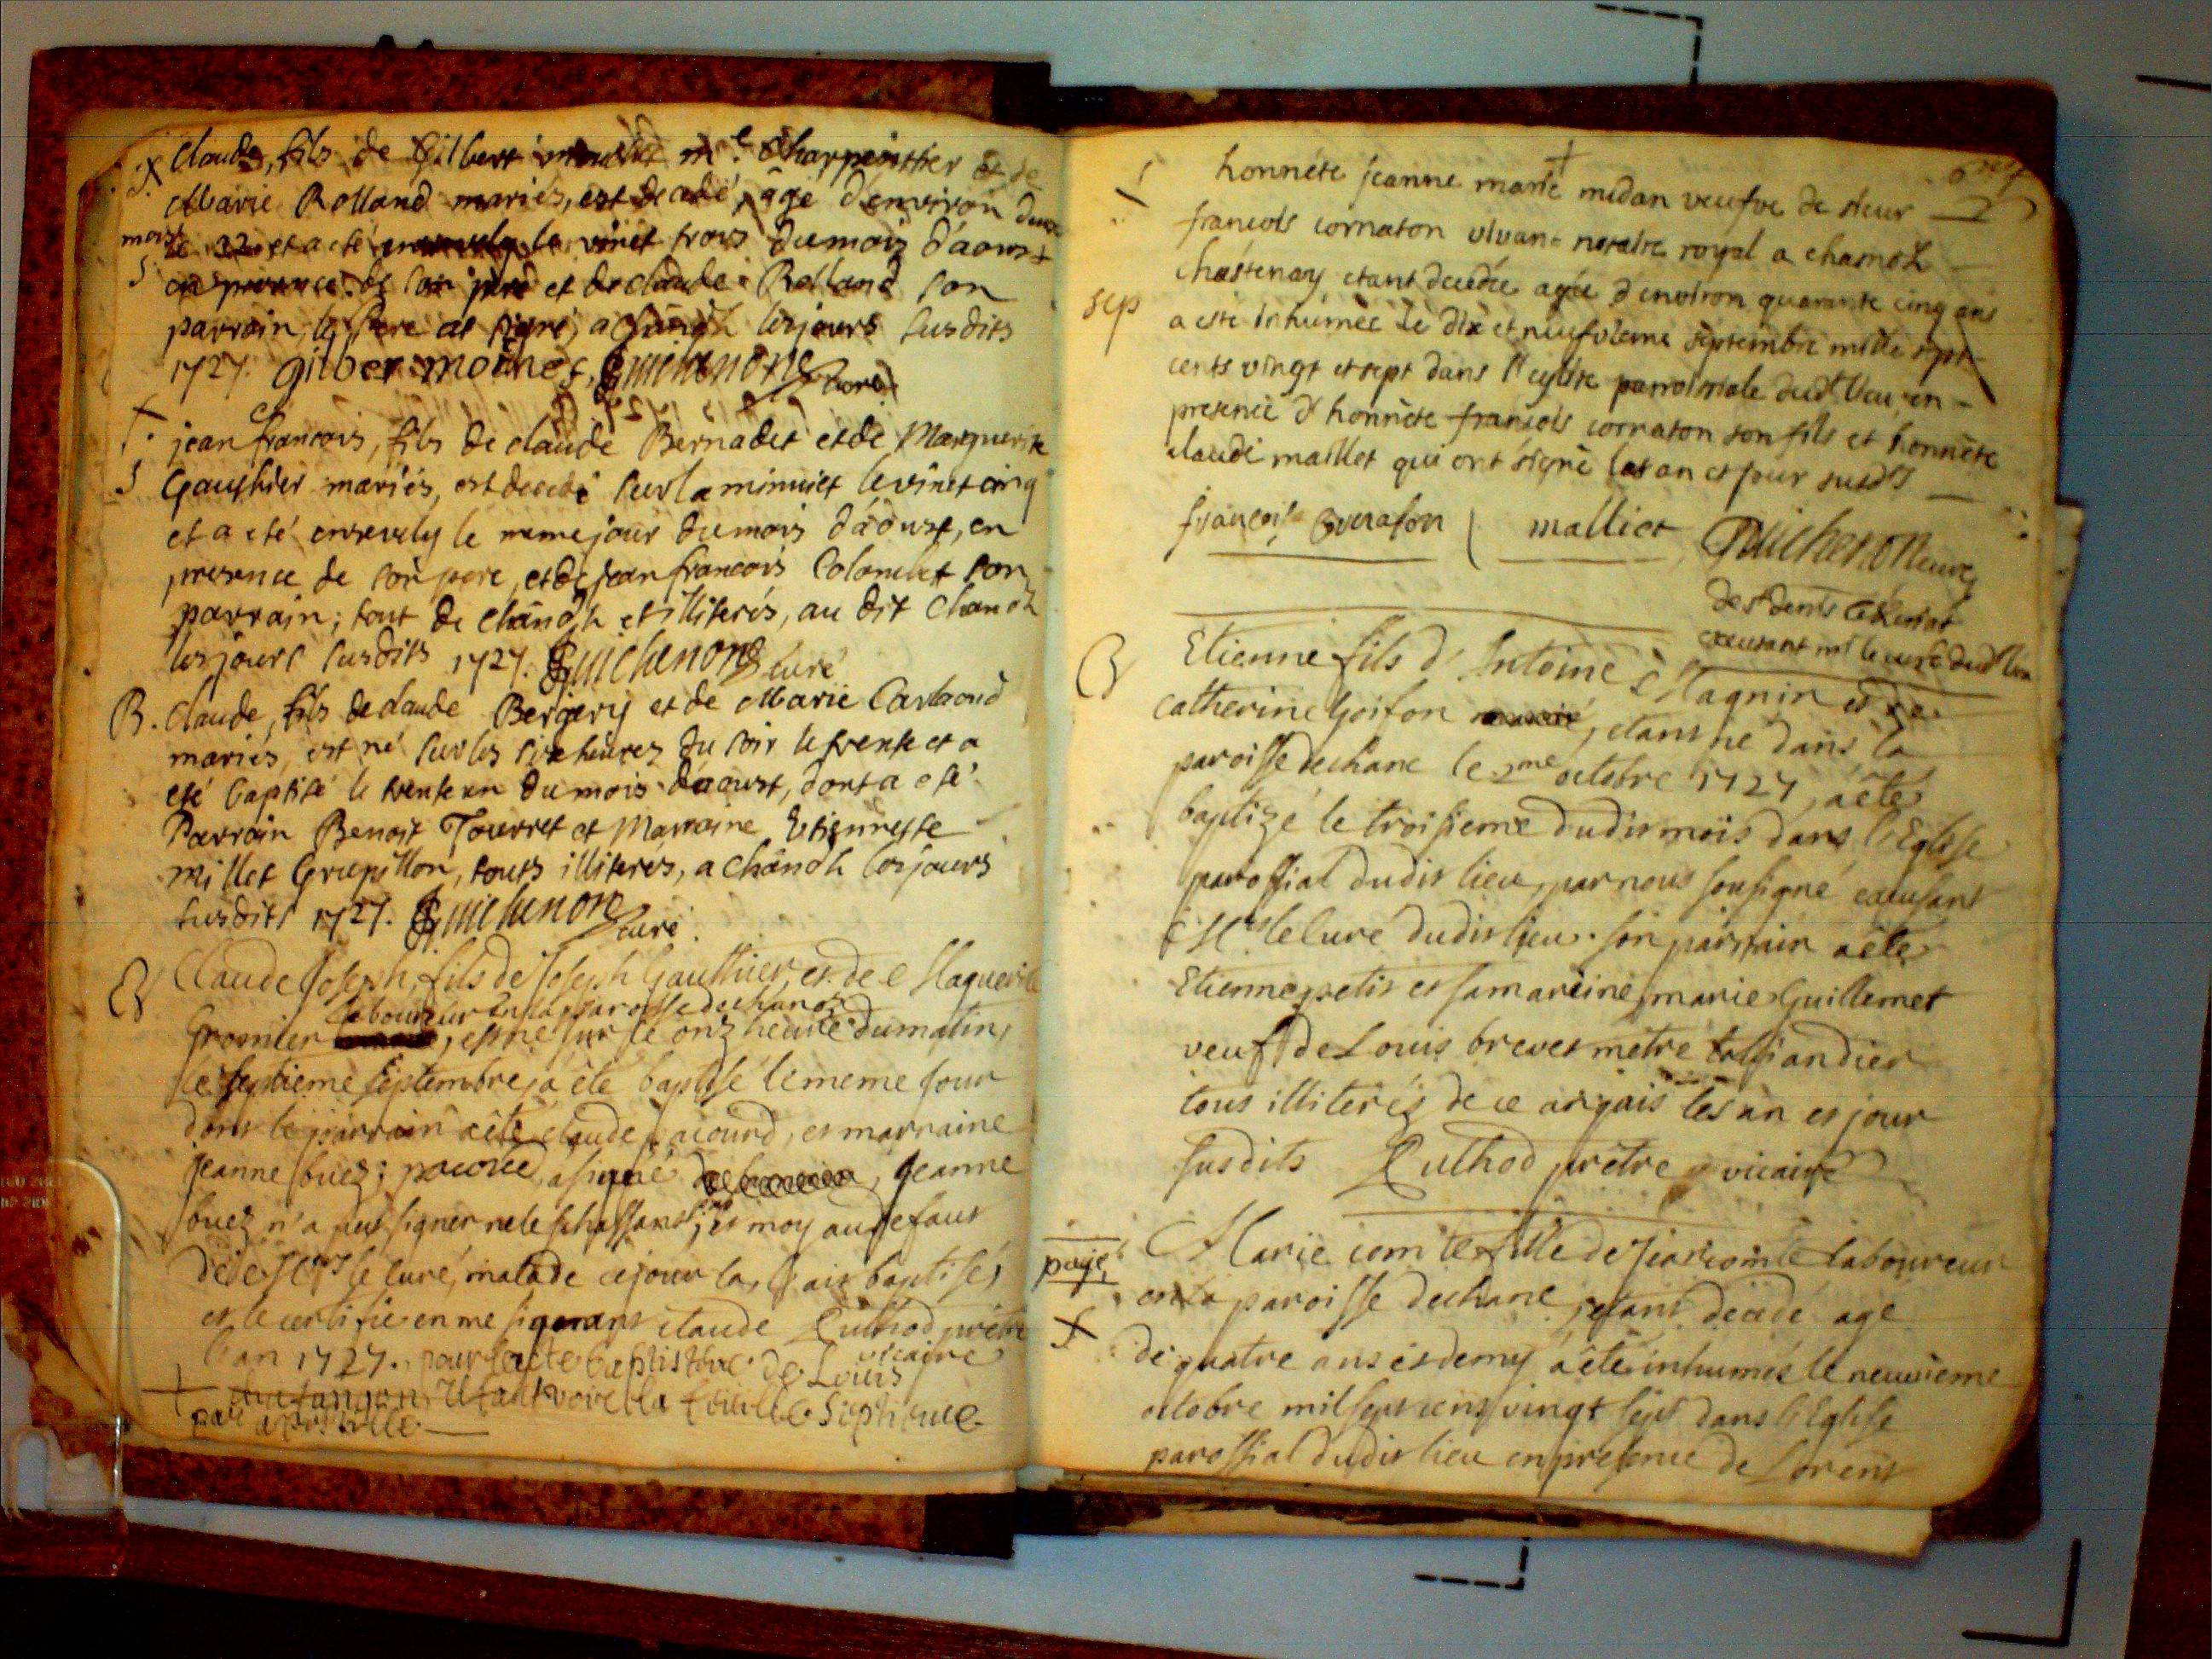 Claude, fils de Gilbert m.e Charpentier et de
Marie Rolland mariés, est decedé, âgé d'environ deux
mois le 22 et a eté ensevely le vint trois du mois d'aoust
en presence de son pere et de claude Rolland son
parrain, le pere at signé, a chanoz les jours susdits
1727. gilber moinet, Guichenon Curé
jean francois, fils de claude Bernadet et de Marguerite
Gauthier mariés, est decedé sur la minuict le vint cinq
et a eté ensevely le meme jour du mois d'aoust, en
presence de son pere, et de jean francois Colombet son
parrain; tout de chanoz et illiterés, au dit chanoz
les jours susdits 1727. Guichenon Curé
B. Claude, fils de claude Bergery et de Marie Carlaond
mariés, est né sur les six heures du soir le trente et a
eté baptisé le trente un du mois d'aoust, dont a eté
Parrain Benoit Tourret et Marraine Etiennette
millet Grupillon, touts illiterés, a chanoz les jours
susdits 1727. Guichenon Curé
B Claude Joseph, fils de Joseph Gauthier, et de Marguerite
laboureur en la paroisse de chanoz
Gromier, est né sur le onz heure du matin,
le septieme septembre, a été baptisé le meme jour
dont le parrain a été claude pacourd, et marraine
jeanne buez; pacourd a signé, jeanne
buez n'a peut signer ne le schassant; et moy au defaut
de Mrs le curé, malade ce jour la, l'ait baptisé,
et le certifie en me signant claude Ruthod prêtre
vicaire
l'an 1727. pour l'acte baptistere de Louis
il faut voire la feuille
par apostille
honnéte jeanne marie midan veufve de sieur
francois cornaton vivant notaire royal a chanoz
chastenay etant decedée agée d'environ quarante cinq ans
sep a esté inhumée le dix et neufvieme septembre mille sept
cents vingt et sept dans l'eglise parroissiale dudt lieu, en
presence d'honnéte francois cornaton son fils et honnéte
claude maillet qui ont signé les an et jour susdts
françois Cornaton malliet Guichenon curé
excusant mr le curé dudt lieu
B Etienne fils d'Antoine Magnin et de
Catherine Goifon, etant né dans la
paroisse de chane le 2me octobre 1727, a été
baptizé le troisieme dudit mois dans l'Eglise
parossial dudit lieu, par nous sousigné excusant
Mrs le Curé dudit lieu. son parrain a été
Etienne petit et sa mareine marie Guillemet
veuf de Louis brevet mêtre
tous illiterés de ce les an et jour
susdits Ruthod prêtre vicaire
paye Marie comte fille de Jean comte Laboureur
en la paroisse de chane, etant décedé agé
de quatre ans et demy a été inhumée le neuvieme
octobre mil sept cens vingt sept dans l'Eglise
parossial dudit lieu en presence de Lorent